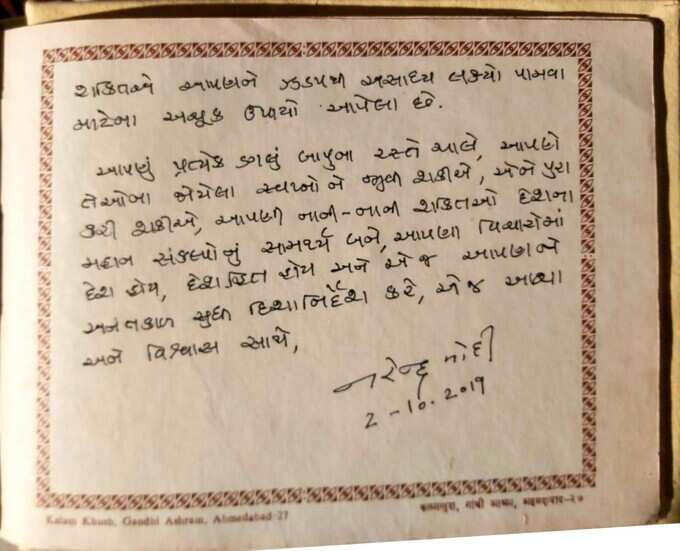 શક્તિએ આપણને ઝડપથી અસાધ્ય લક્ષ્યો પામવા
માટેના અચૂક ઉપાયો આપેલા છે.
આપણું પ્રત્યેક ડગલું બાપુના રસ્તે ચાલે, આપણે
તેઓના જોયેલા સ્વપ્નોને જીવી શકીએ, એને પુરા
કરી શકીએ, આપણી નાની-નાની શક્તિઓ દેશના
મહાન સંકલ્પોનું સામર્થ્ય બને, આપણા વિચારોમાં
દેશ હોય, દેશહિત હોય અને એ જ આપણને
અનંતકાળ સુધી દિશાનિર્દેશ કરે, એ જ આસ્થા
અને વિશ્વાસ સાથે,
નરેન્દ્ર મોદી
2-10.2019
Kalam Khush, Gandhi Ashram, Ahmedabad-27
कलमखुश, गांधी आश्रम, अहमदाबाद-२७